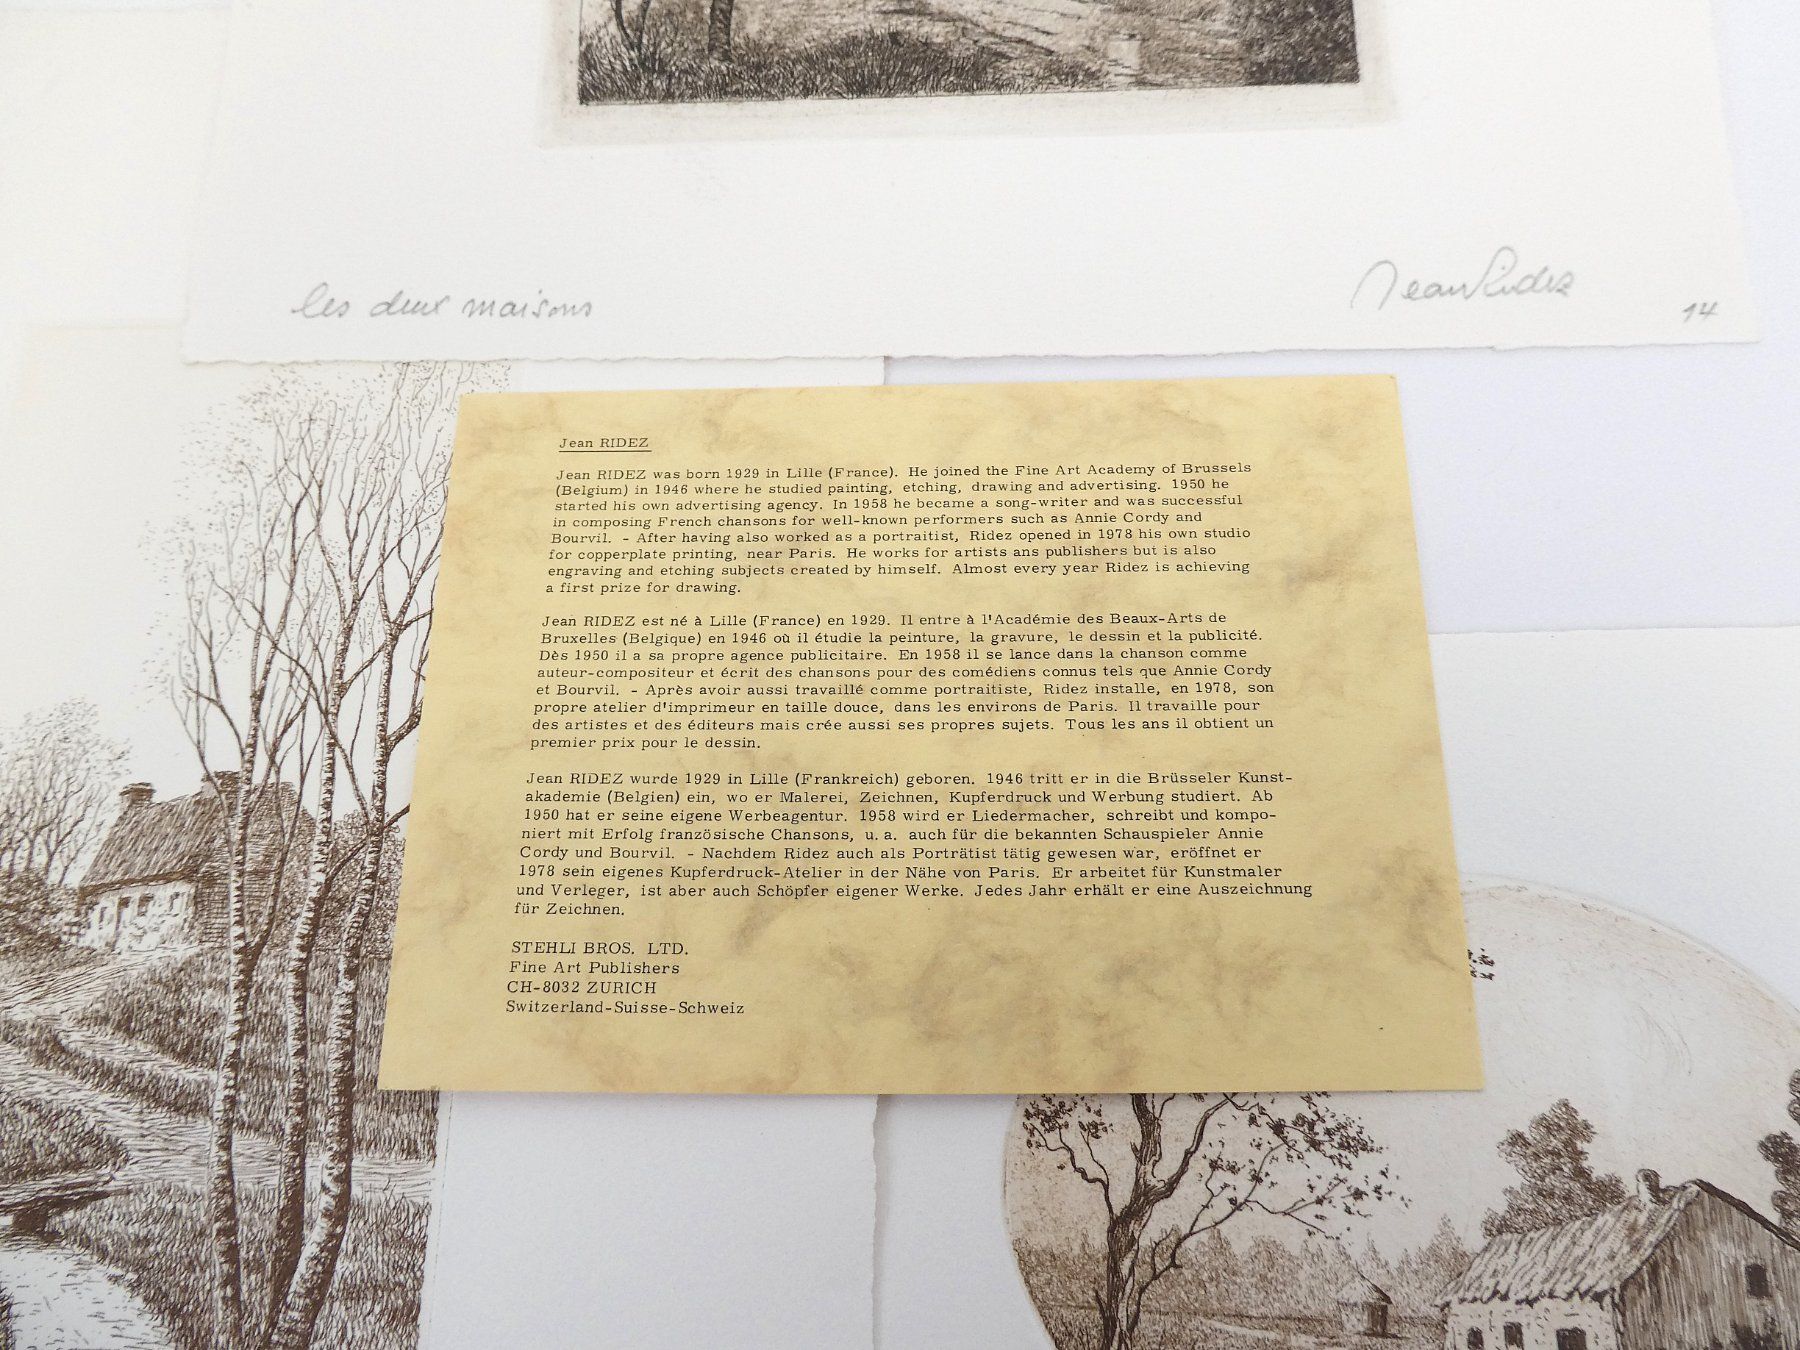 les deux maisons
Jean Ridez
14
Jean RIDEZ
Jean RIDEZ was born 1929 in Lille (France). He joined the Fine Art Academy of Brussels
(Belgium) in 1946 where he studied painting, etching, drawing and advertising. 1950 he
started his own advertising agency. In 1958 he became a song-writer and was successful
in composing French chansons for well-known performers such as Annie Cordy and
Bourvil. - After having also worked as a portraitist, Ridez opened in 1978 his own studio
for copperplate printing, near Paris. He works for artists ans publishers but is also
engraving and etching subjects created by himself. Almost every year Ridez is achieving
a first prize for drawing.
Jean RIDEZ est né à Lille (France) en 1929. Il entre à l'Académie des Beaux-Arts de
Bruxelles (Belgique) en 1946 où il étudie la peinture, la gravure, le dessin et la publicité.
Dès 1950 il a sa propre agence publicitaire. En 1958 il se lance dans la chanson comme
auteur-compositeur et écrit des chansons pour des comédiens connus tels que Annie Cordy
et Bourvil. - Après avoir aussi travaillé comme portraitiste, Ridez installe, en 1978, son
propre atelier d'imprimeur en taille douce, dans les environs de Paris. Il travaille pour
des artistes et des éditeurs mais crée aussi ses propres sujets. Tous les ans il obtient un
premier prix pour le dessin.
Jean RIDEZ wurde 1929 in Lille (Frankreich) geboren. 1946 tritt er in die Brüsseler Kunst-
akademie (Belgien) ein, wo er Malerei, Zeichnen, Kupferdruck und Werbung studiert. Ab
1950 hat er seine eigene Werbeagentur. 1958 wird er Liedermacher, schreibt und kompo-
niert mit Erfolg französische Chansons, u. a. auch für die bekannten Schauspieler Annie
Cordy und Bourvil. - Nachdem Ridez auch als Porträtist tätig gewesen war, eröffnet er
1978 sein eigenes Kupferdruck-Atelier in der Nähe von Paris. Er arbeitet für Kunstmaler
und Verleger, ist aber auch Schöpfer eigener Werke. Jedes Jahr erhält er eine Auszeichnung
für Zeichnen.
STEHLI BROS. LTD.
Fine Art Publishers
CH-8032 ZURICH
Switzerland-Suisse-Schweiz